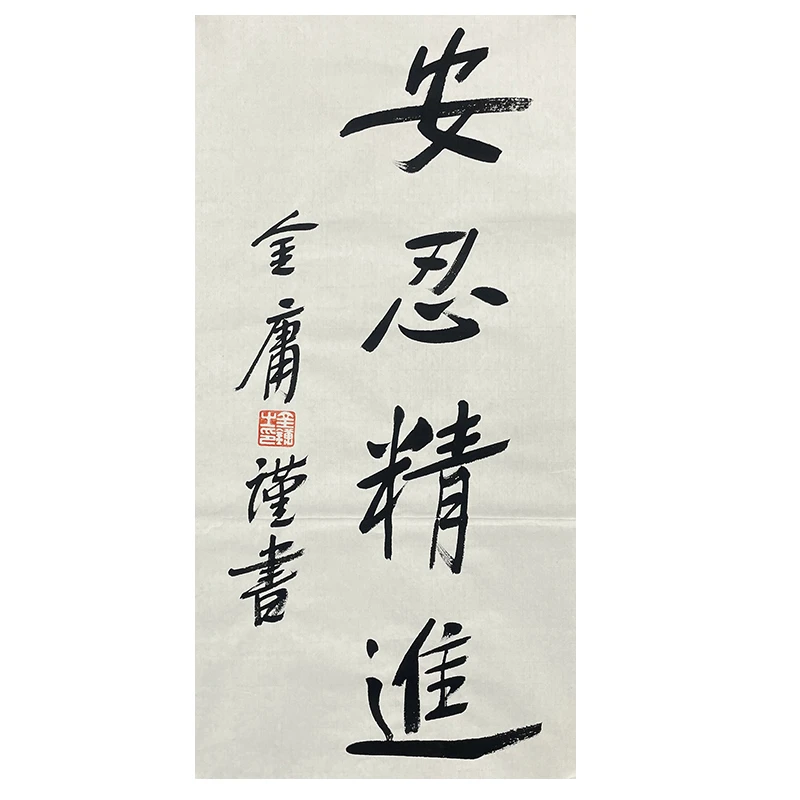 安忍精進
金庸
謹書